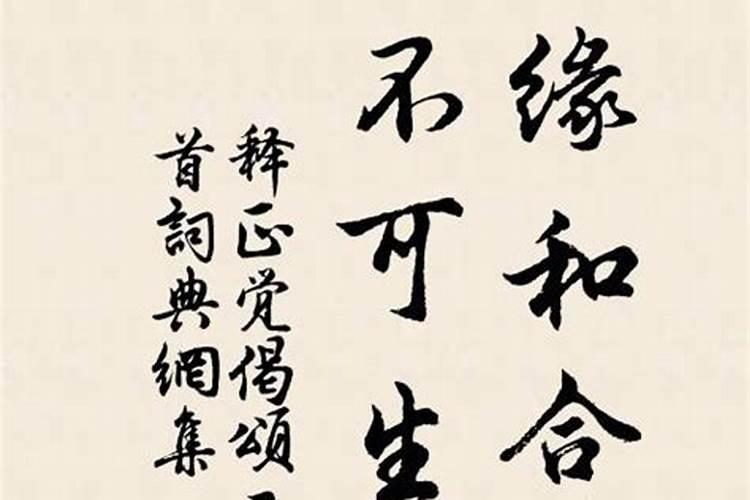 缘和合
不可生
释正觉偈颂
首詞典網集